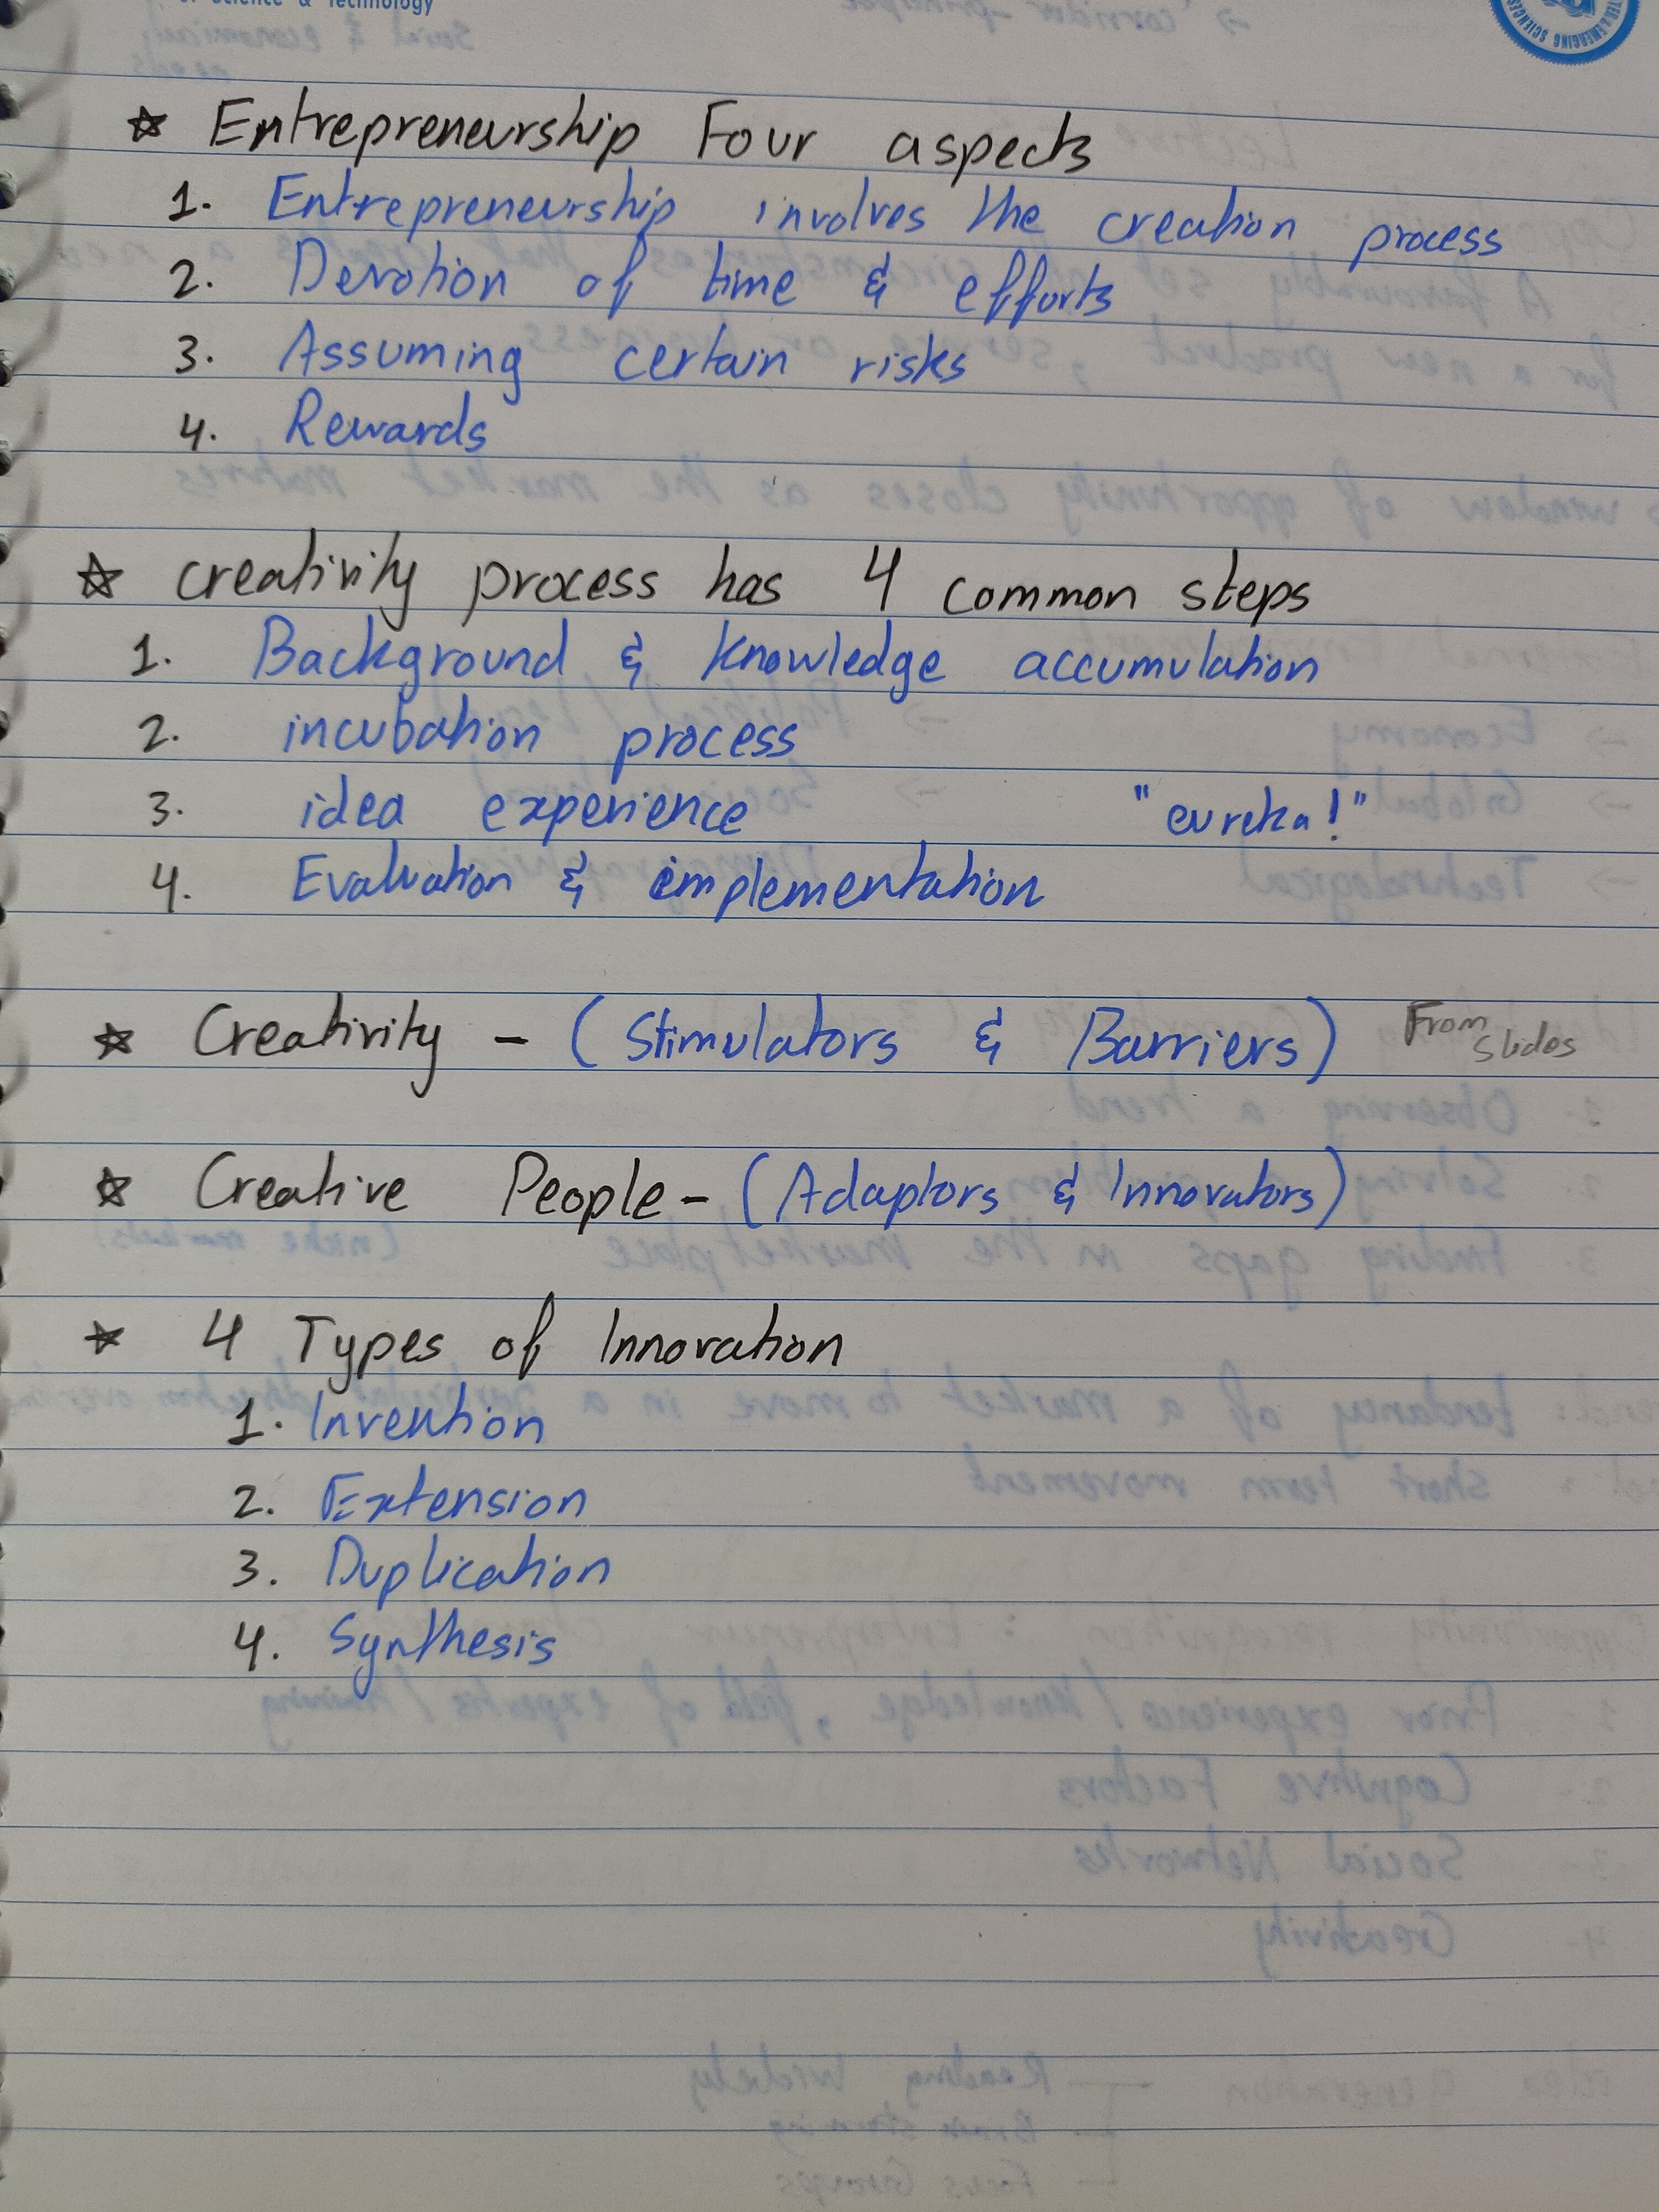 of Science & Technology
☆ Entrepreneurship Four aspects
1. Entrepreneurship involves the creation process
2. Devotion of time & efforts
3. Assuming certain risks
4. Rewards
☆ creativity process has 4 common steps
1. Background & knowledge accumulation
2. incubation process
3. idea experience "eureka!"
4. Evaluation & implementation
☆ Creativity - (Stimulators & Barriers) From Slides
☆ Creative People - (Adaptors & Innovators)
☆ 4 Types of Innovation
1. Invention
2. Extension
3. Duplication
4. Synthesis